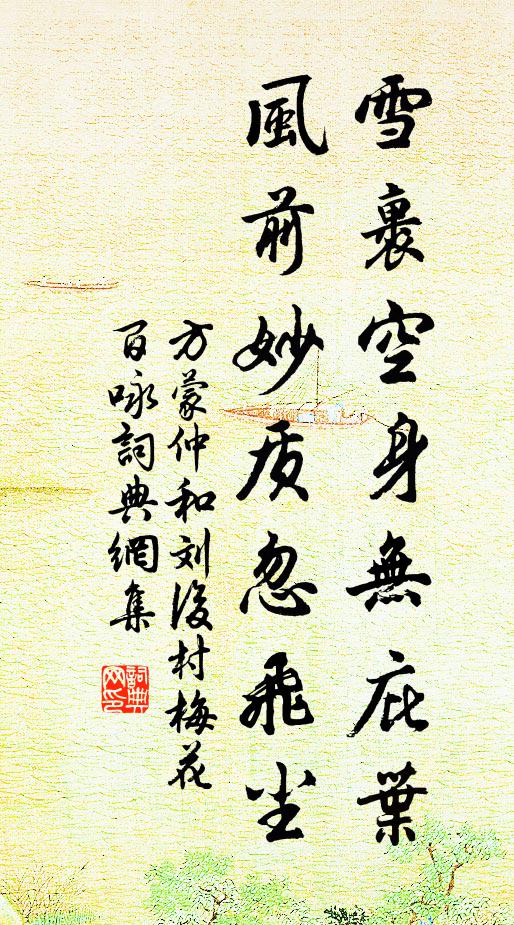 雪裹空身無庇葉
風前妙质忽飛尘
方蒙仲和刘後村梅花
百咏詞典網集
詞典
网印